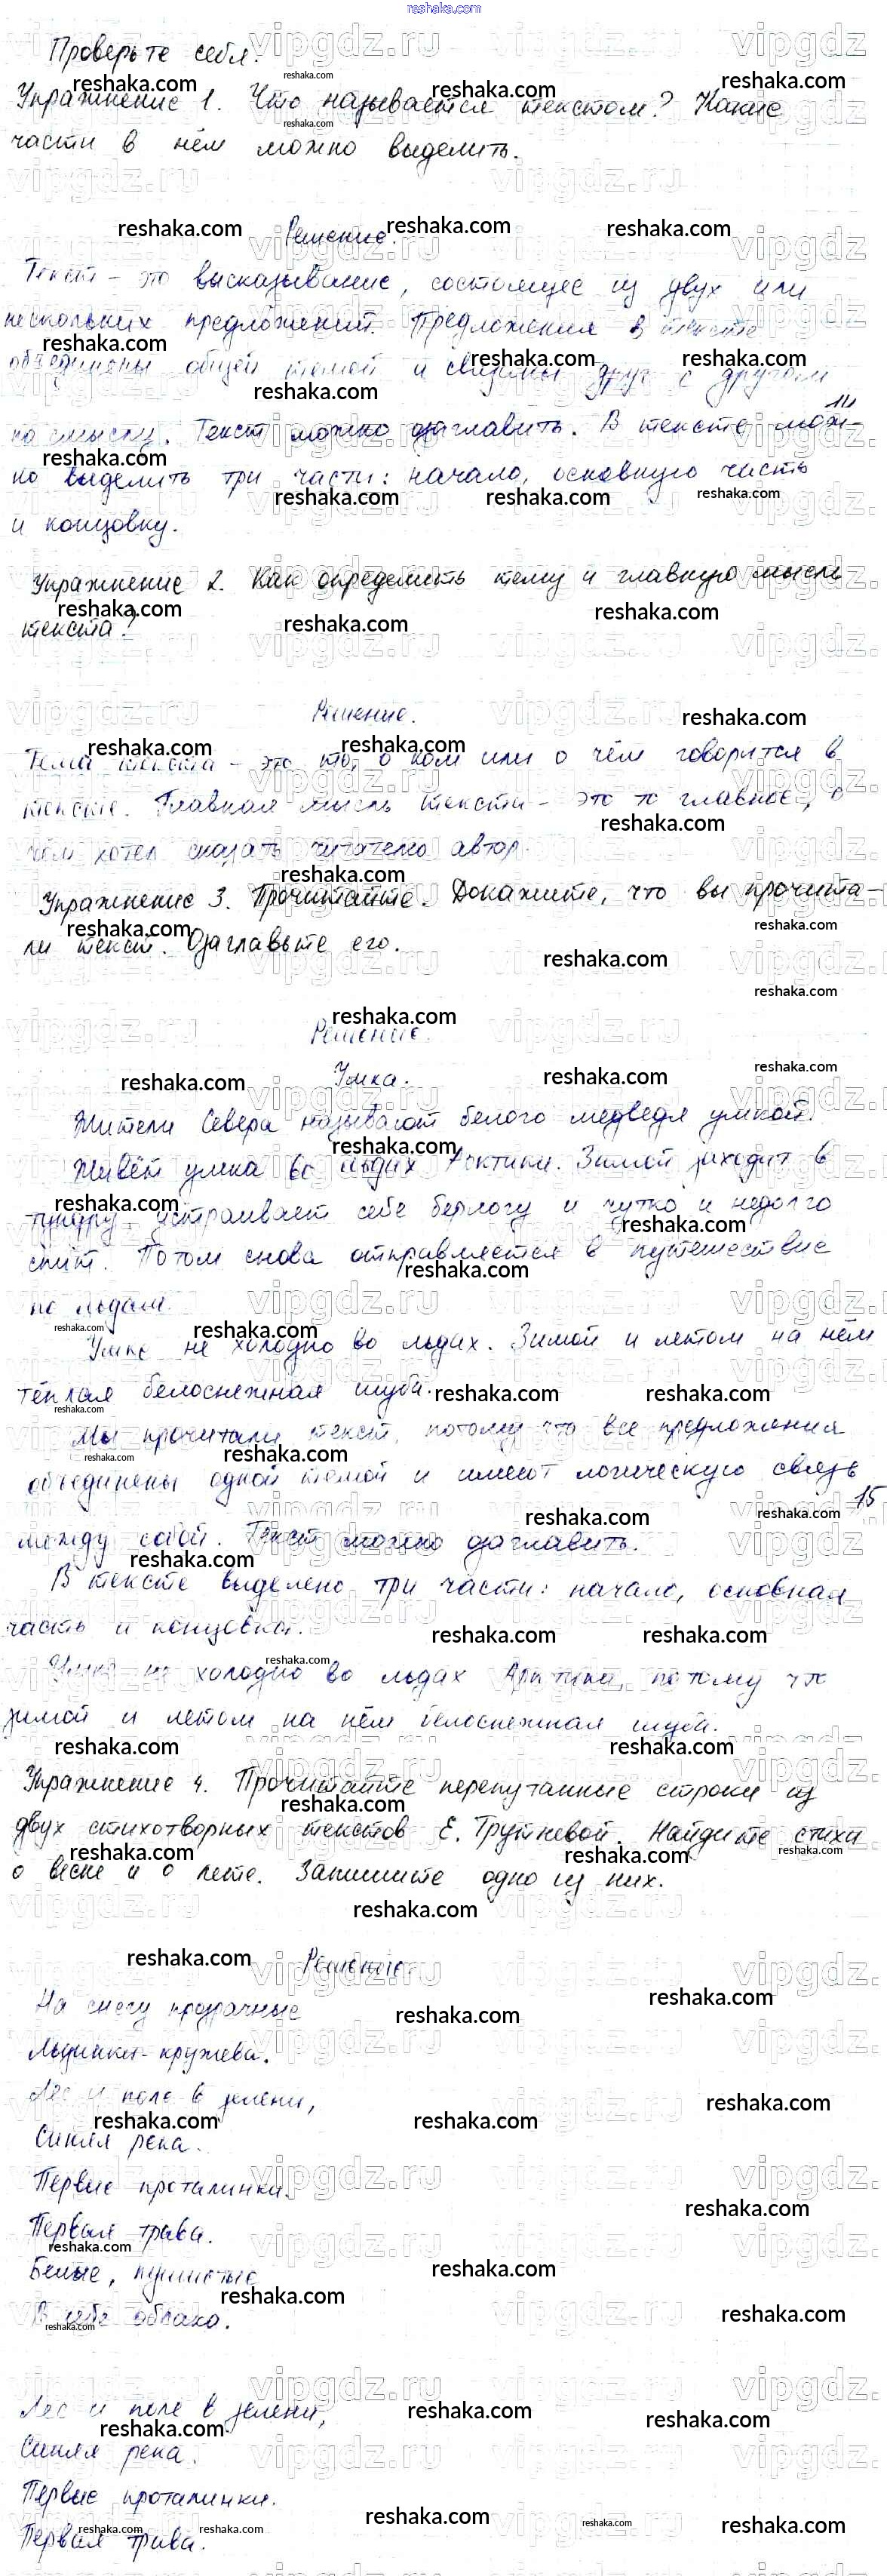 reshaka.com
Проверьте себя.
Упражнение 1. Что называется текстом? Какие
части в нём можно выделить.
Решение.
Текст - это высказывание, состоящее из двух или
нескольких предложений. Предложения в тексте
объединены общей темой и связаны друг с другом
по смыслу. Текст можно озаглавить. В тексте мож-
14
но выделить три части: начало, основную часть
и концовку.
Упражнение 2. Как определить тему и главную мысль
текста?
Решение.
Тема текста - это то, о ком или о чём говорится в
тексте. Главная мысль текста - это то главное, о
чём хотел сказать читателю автор.
Упражнение 3. Прочитайте. Докажите, что вы прочита-
ли текст. Озаглавьте его.
Решение.
Умка.
Жители Севера называют белого медведя умкой.
Живёт умка во льдах Арктики. Зимой заходит в
тундру, устраивает себе берлогу и чутко и недолго
спит. Потом снова отправляется в путешествие
по льдам.
Умке не холодно во льдах. Зимой и летом на нём
тёплая белоснежная шуба.
Мы прочитали текст, потому что все предложения
объединены одной темой и имеют логическую связь
15
между собой. Текст можно озаглавить.
В тексте выделено три части: начало, основная
часть и концовка.
Умке не холодно во льдах Арктики, потому что
зимой и летом на нём белоснежная шуба.
Упражнение 4. Прочитайте перепутанные строки из
двух стихотворных текстов Е. Трутневой. Найдите стихи
о весне и о лете. Запишите одно из них.
Решение.
На снегу прозрачные
Льдинки-кружева.
Лес и поле в зелени,
Синяя река.
Первые проталинки.
Первая трава.
Белые, пушистые
В небе облака.
Лес и поле в зелени,
Синяя река.
Первые проталинки.
Первая трава.